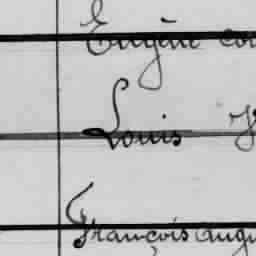 Eugène
Louis
François Augu